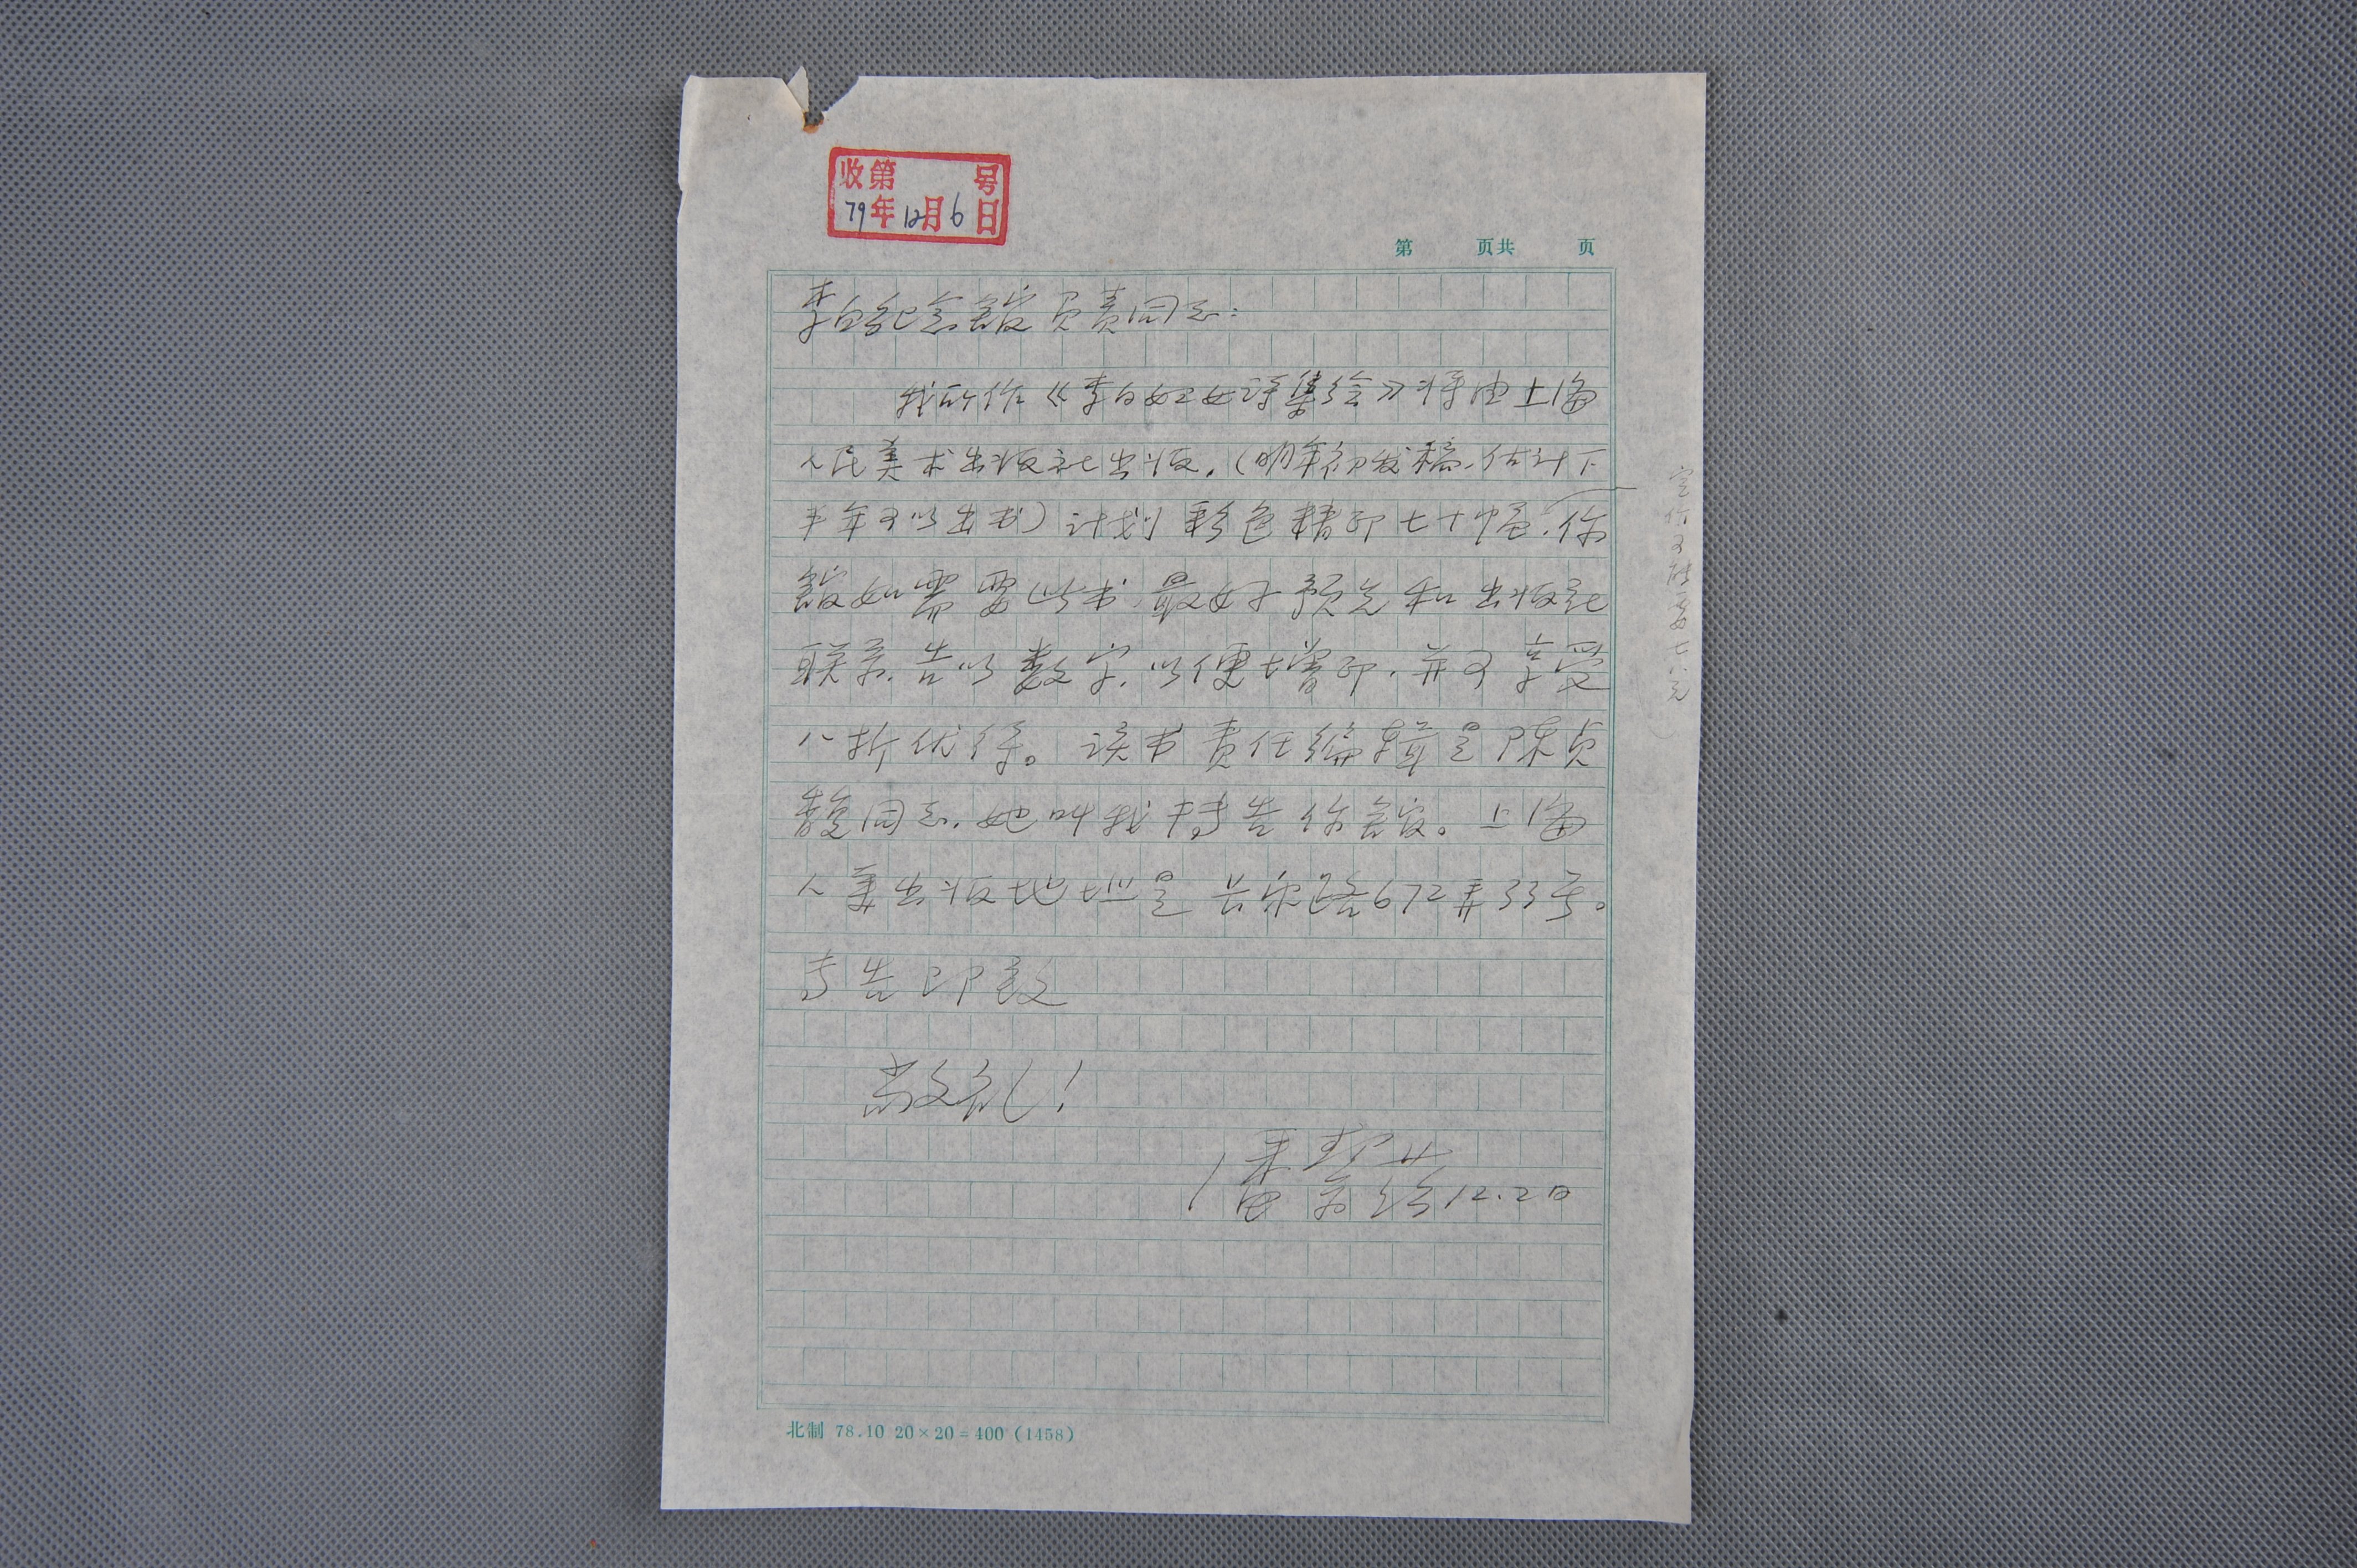 收第 号
79年12月6日
第 页共 页
李白纪念馆负责同志：
我所作《李白妇女诗集绘》将由上海
人民美术出版社出版，（明年初发稿，估计下
半年可以出书）计划彩色精印七十幅，你
馆如需要此书，最好予预先和出版社
联系，告以数字，以便增印，并可享受
八折优待。该书责任编辑是陈贞
馥同志，她叫我转告你馆。上海
人美出版地址是长乐路672弄33号。
专告即致
敬礼！
潘絜兹12.2日
定价可能要七八元
北制 78.10 20×20=400（1458）